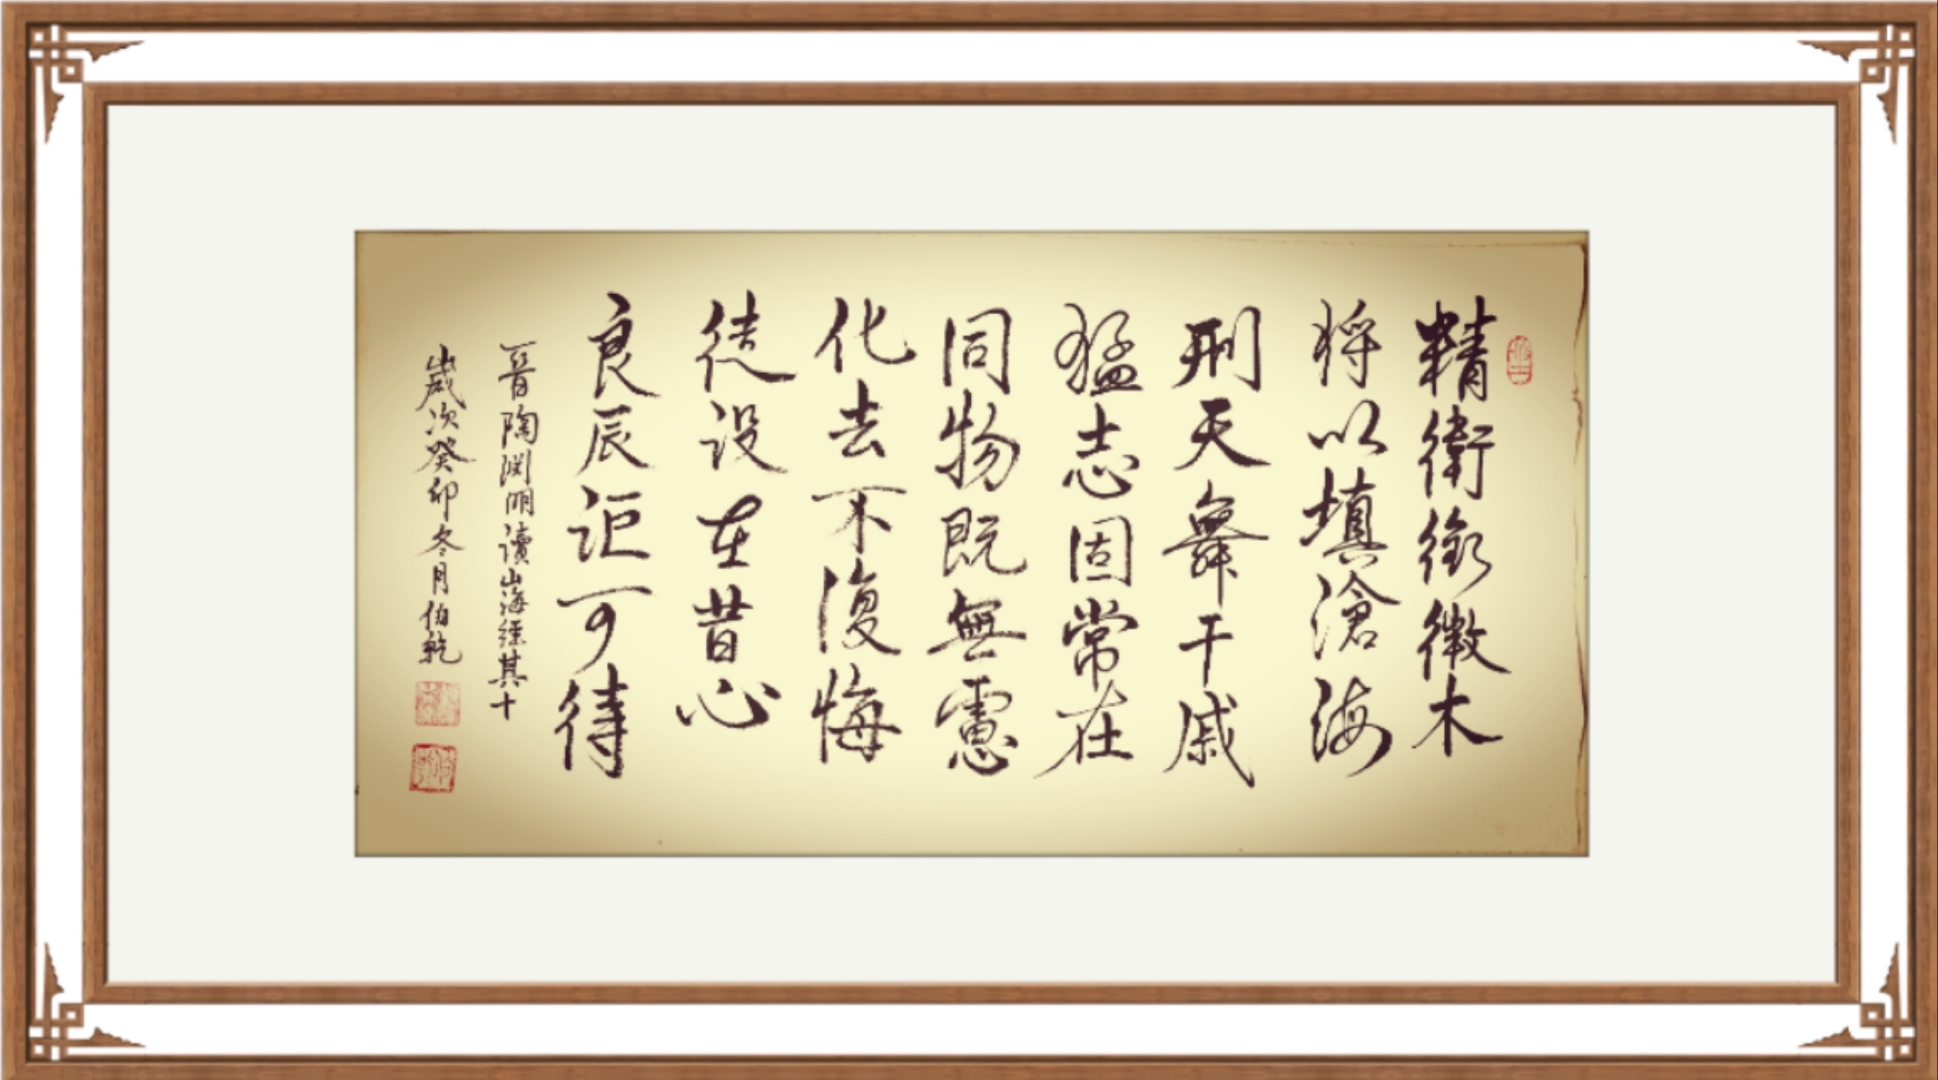 精衛銜微木
将以填滄海
刑天舞干戚
猛志固常在
同物既無慮
化去不復悔
徒设在昔心
良辰讵可待
晋陶渊明讀山海經其十
歲次癸卯冬月伯乾